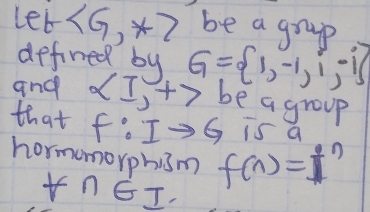 Let <G, *> be a group
defined by G={1,-1,i,-i}
and <I, +> be a group
that f: I → G is a
homomorphism f(n)=i^n
∀ n ∈ I.